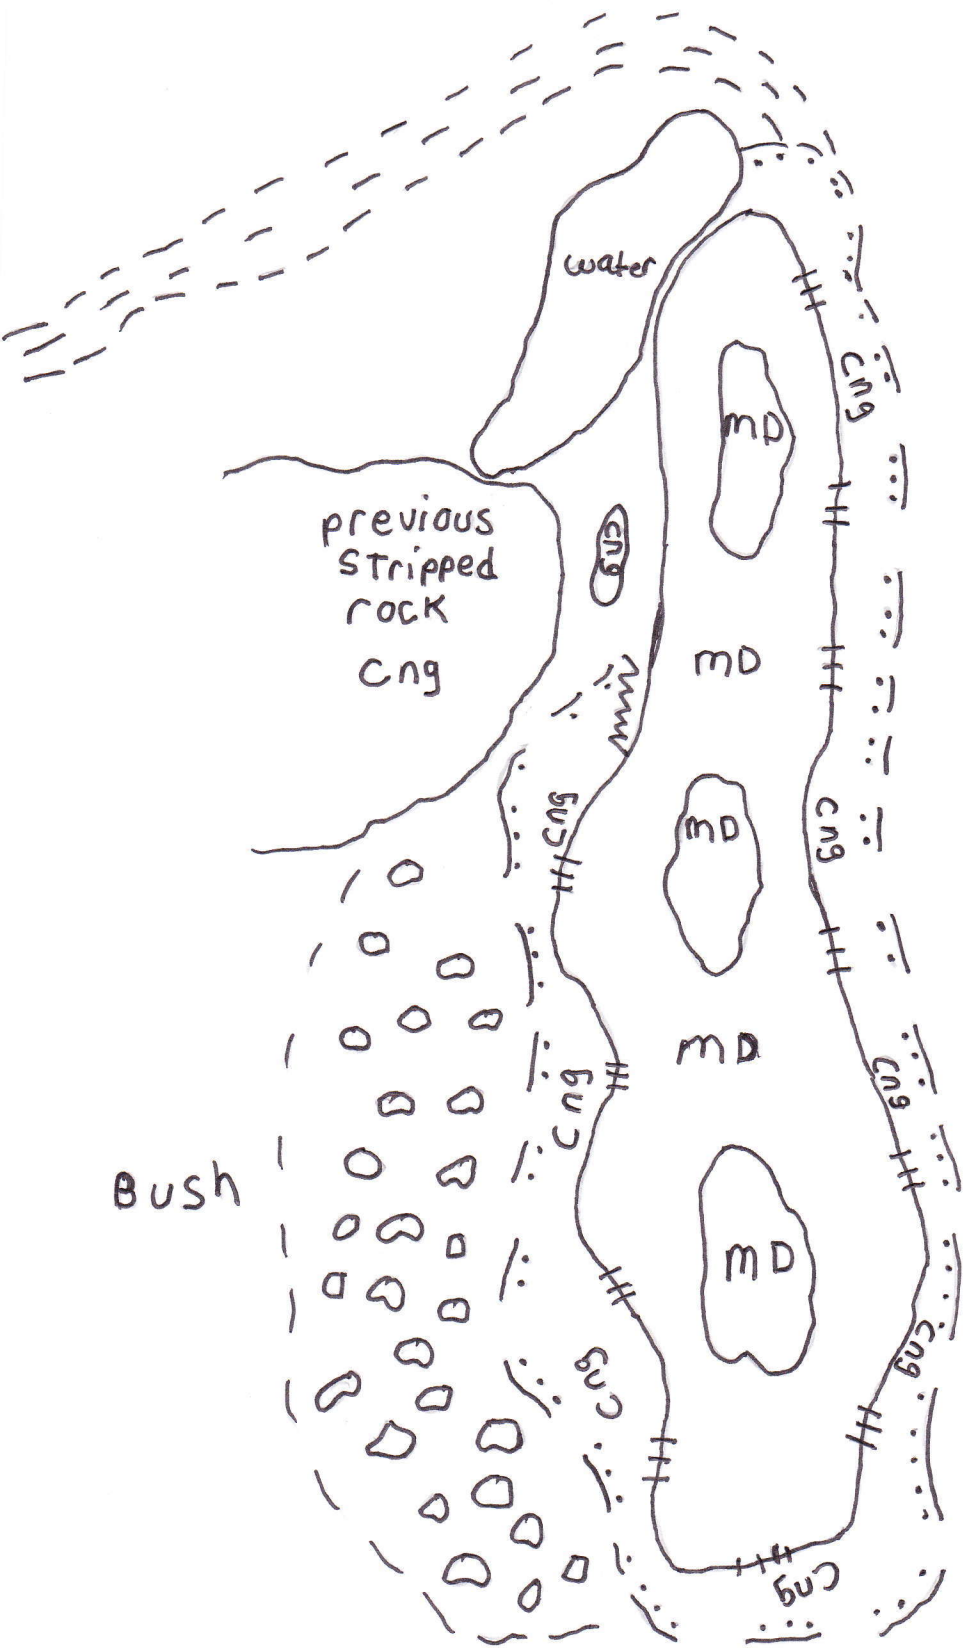 water
cng
MD
previous
stripped
rock
cng
cng
MD
cng
MD
cng
MD
cng
cng
Bush
MD
cng
cng
cng